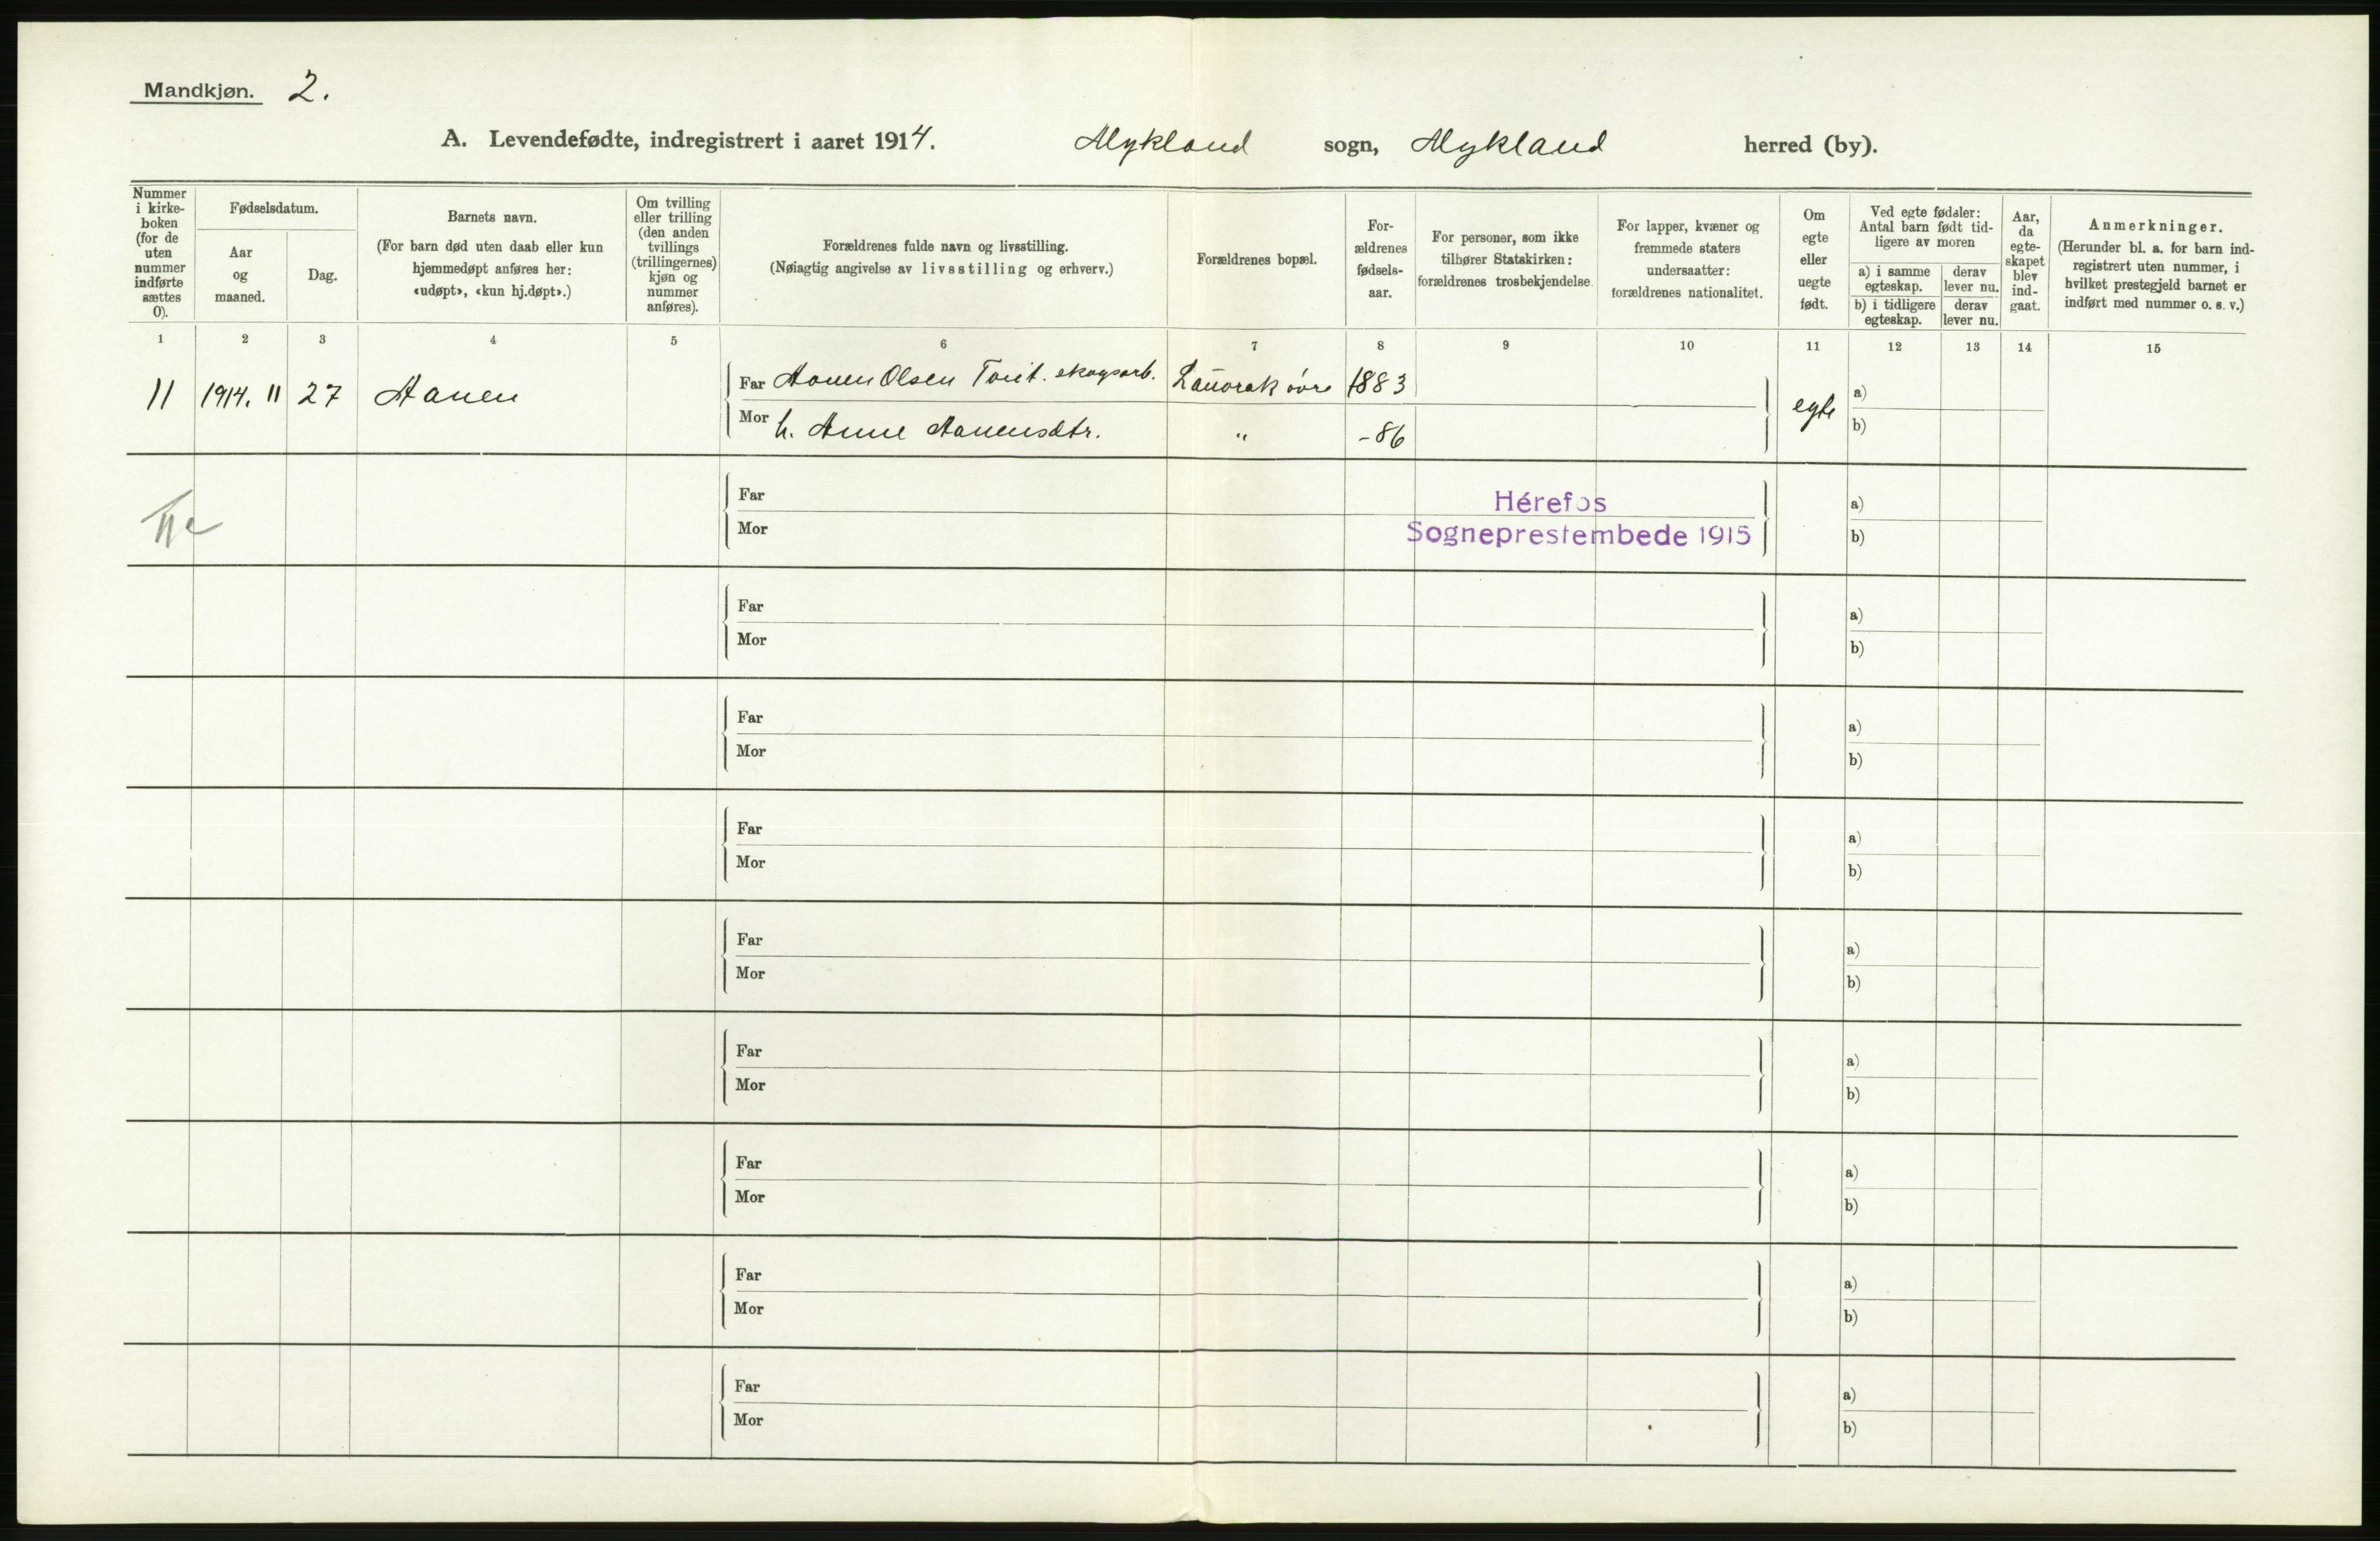 Mandkjøn. 2.
A. Levendefødte, indregistrert i aaret 1914. Mykland sogn, Mykland herred (by).
Nummer i kirke-boken (for de uten nummer indførte sættes 0).
Fødselsdatum.
Aar og maaned.
Dag.
Barnets navn.
(For barn død uten daab eller kun hjemmedøpt anføres her: «udøpt», «kun hj.døpt».)
Om tvilling eller trilling (den anden tvillings (trillingernes) kjøn og nummer anføres).
Forældrenes fulde navn og livsstilling.
(Nøiagtig angivelse av livsstilling og erhverv.)
Forældrenes bopæl.
For-ældrenes fødsels-aar.
For personer, som ikke tilhører Statskirken: forældrenes trosbekjendelse.
For lapper, kvæner og fremmede staters undersaatter: forældrenes nationalitet.
Om egte eller uegte født.
Ved egte fødsler: Antal barn født tid-ligere av moren
a) i samme egteskap.
derav lever nu.
b) i tidligere egteskap.
derav lever nu.
Aar, da egte-skapet blev ind-gaat.
Anmerkninger.
(Herunder bl. a. for barn ind-registrert uten nummer, i hvilket prestegjeld barnet er indført med nummer o. s. v.)
1 2 3 4 5 6 7 8 9 10 11 12 13 14 15
11 1914. 11 27 Aanen Far Aanen Olsen skogsarb. øvre 1883 egte a)
Mor h. Anne Aanensdtr. " -86 b)
Far Hérefos a)
Mor Sogneprestembede 1915 b)
Far a)
Mor b)
Far a)
Mor b)
Far a)
Mor b)
Far a)
Mor b)
Far a)
Mor b)
Far a)
Mor b)
Far a)
Mor b)
Far a)
Mor b)